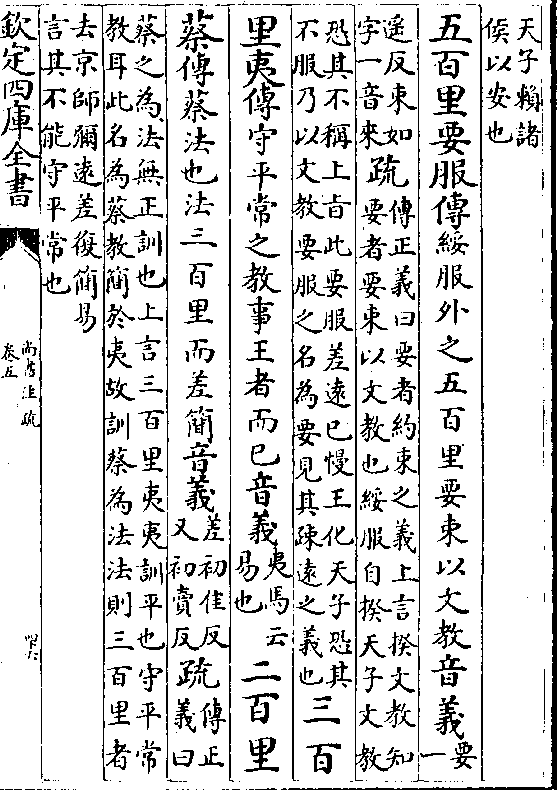 天子賴諸
侯以安也
五百里要服傳綏服外之五百里要束以文教音義要一
遥反束如
字一音來疏傳正義曰要者約束之義上言揆文教知
要者要束以文教也綏服自揆天子文教
恐其不稱上旨此要服差遠已慢王化天子恐其
不服乃以文教要服之名為要見其疎遠之義也三百
里夷傳守平常之教事王者而已音義夷馬云
易也二百里
蔡傳蔡法也法三百里而差簡音義差初佳反
又初賣反疏傳正
義曰
蔡之為法無正訓也上言三百里夷夷訓平也守平常
教耳此名為蔡教簡於夷故訓蔡為法法則三百里者
去京師彌遠差復簡易
言其不能守平常也
欽定四庫全書
尚書注疏
卷五